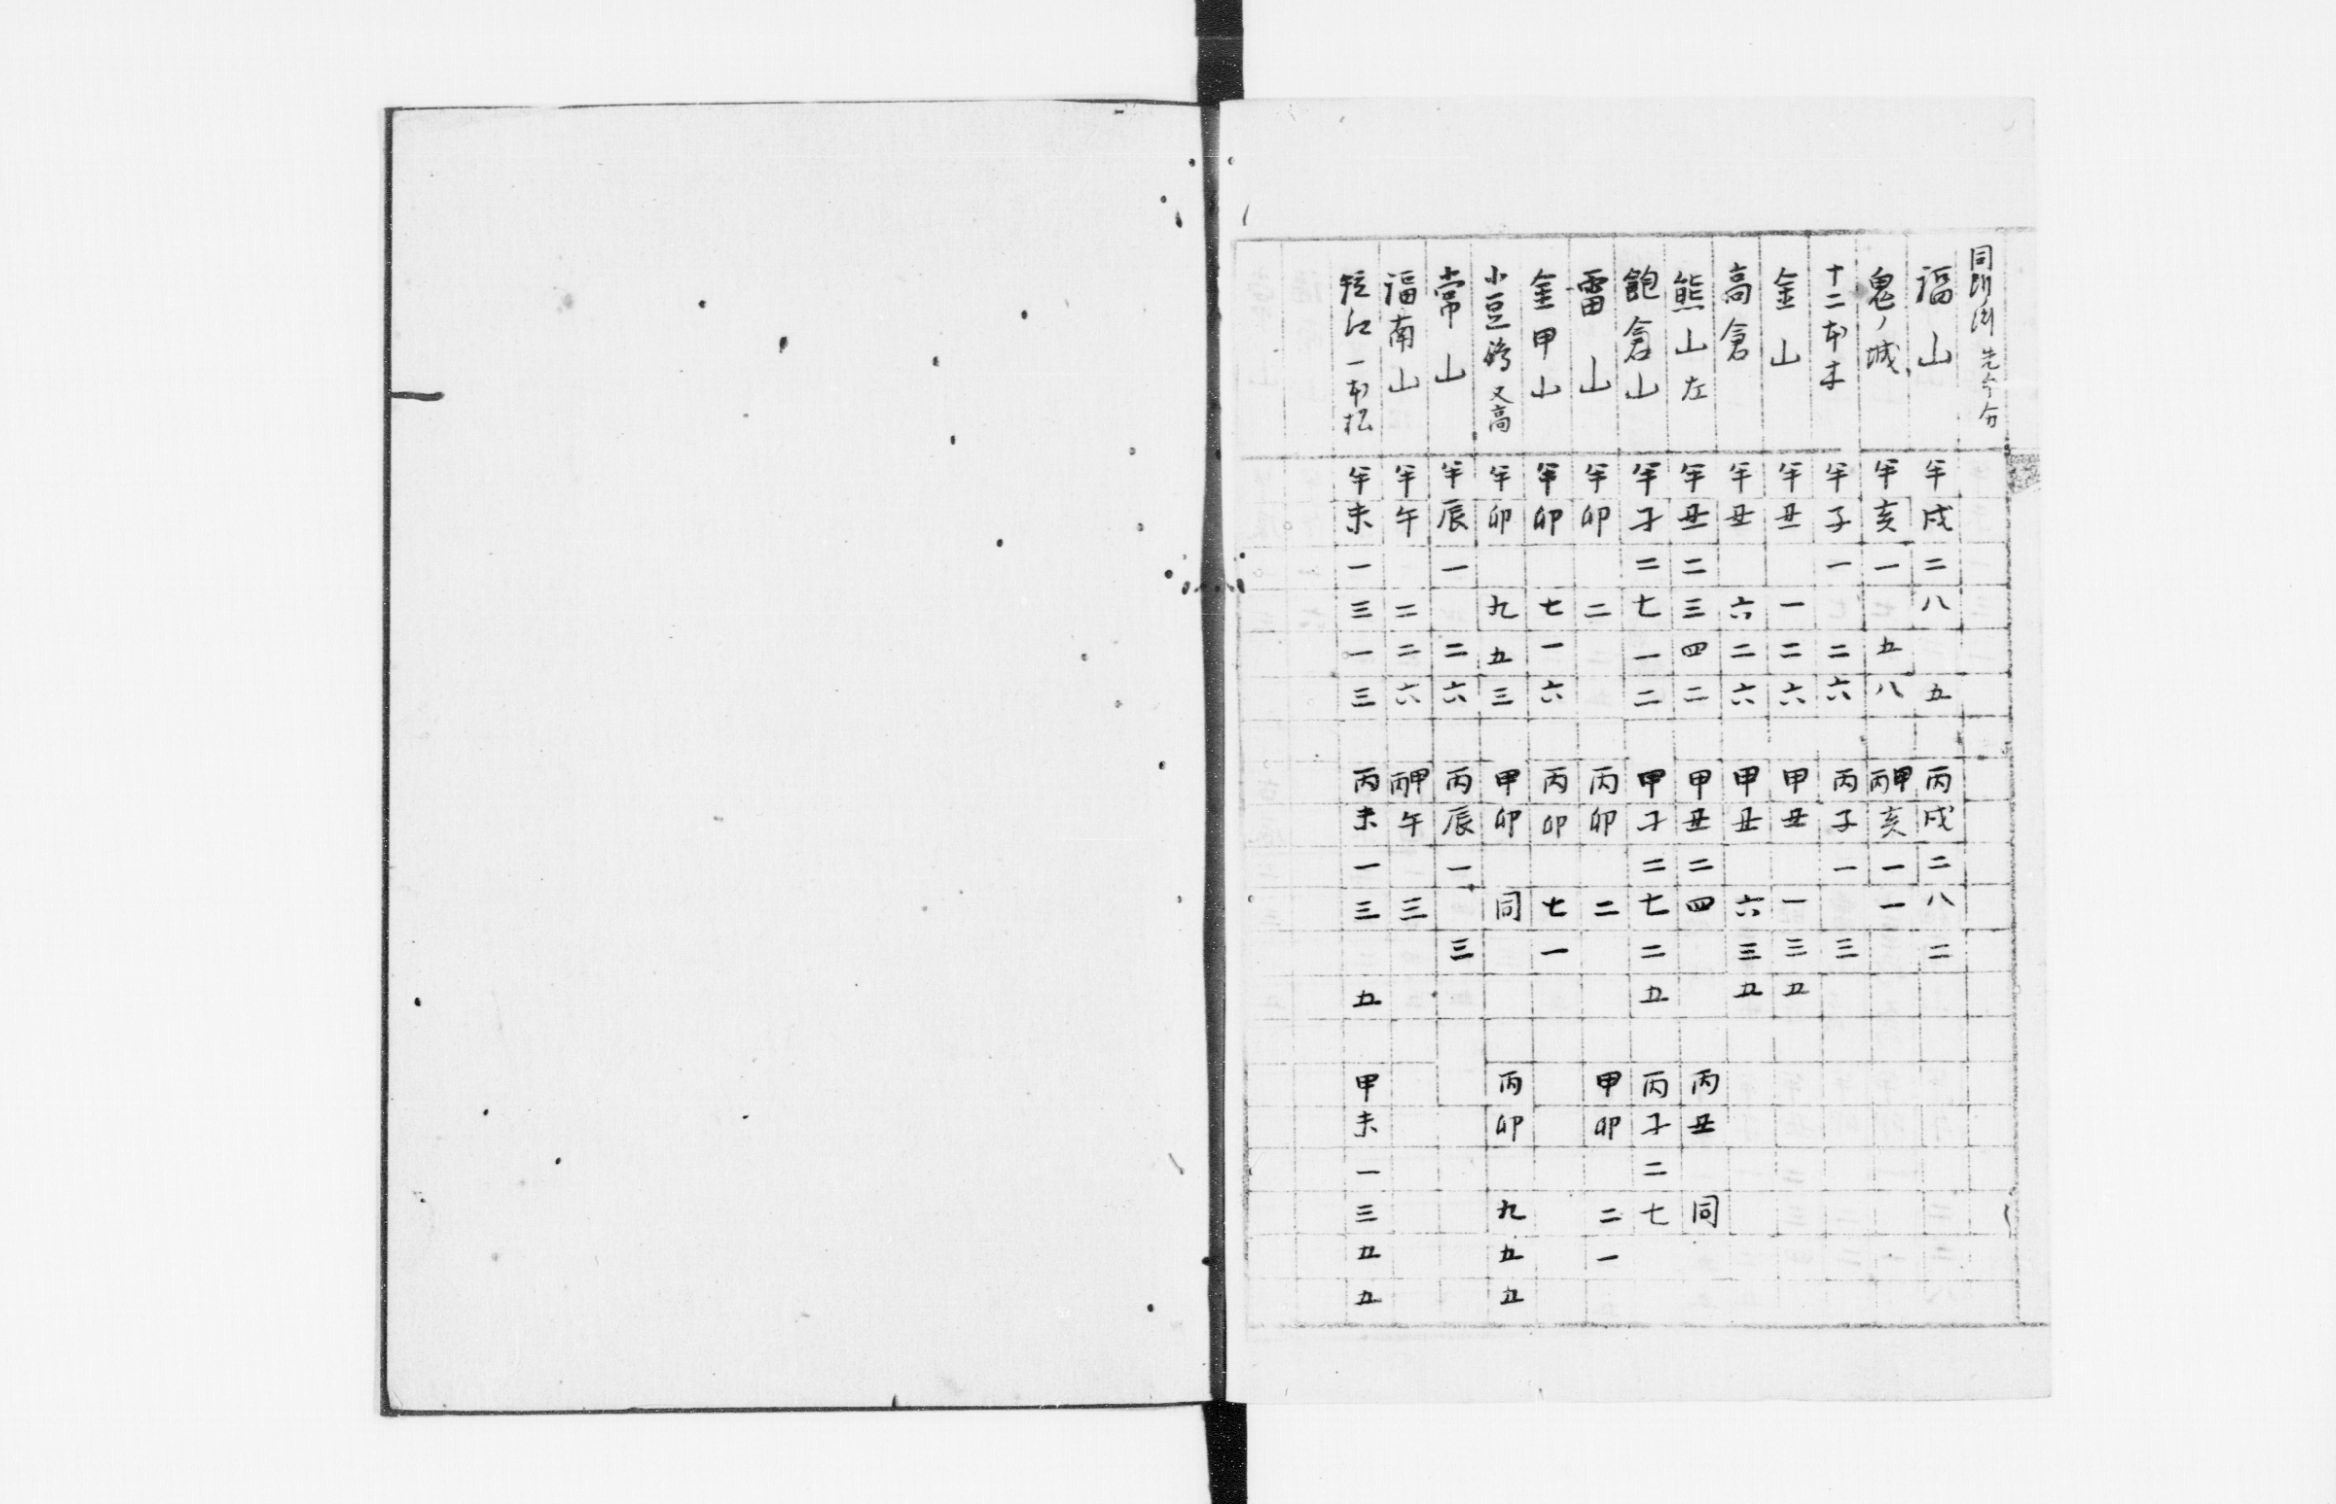 同所 先今分
福山 午戌二八 五 丙戌二八二
鬼ノ城 午亥一 五八 丙甲亥一一
十二本木 午子一 二六 丙子一 三
金山 午丑 一二六 甲丑 一三五
高倉 午丑 六二六 甲丑 六三五
熊山左 午丑二三四二 甲丑二四 丙丑 同
飽倉山 午子二七一二 甲子二七二五 丙子二七
雷山 午卯 二 丙卯 二 甲卯 二一
金甲山 午卯 七一六 丙卯 七一
小豆嶋又高 午卯 九五三 甲卯 同 丙卯 九五五
常山 午辰一 二六 丙辰一 三
福南山 午午 二二六 丙甲午 三
短江一本松 午未一三一三 丙未一三 五 甲未一三五五